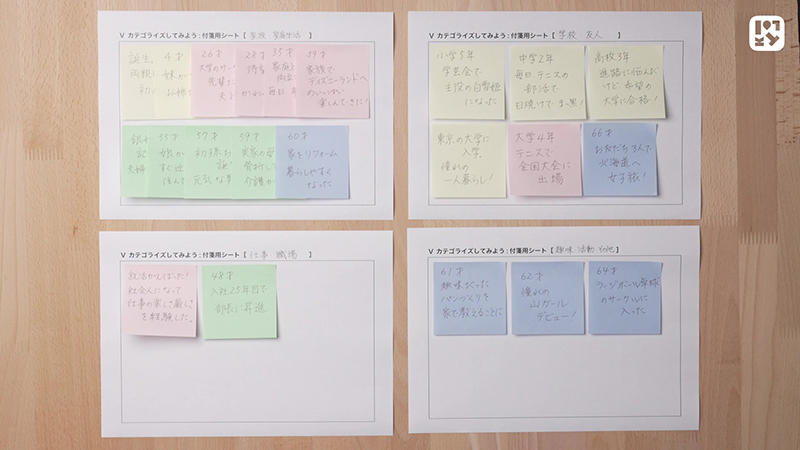 V カテゴライズしてみよう：付箋用シート【 家族・家庭生活 】
誕生
両親に
初い
4才
妹が
お姉さ
26才
大学のサー
先輩と
28才
待望
35才
家庭と
毎日
39才
家族で
ディズニーランドへ
めいっぱい
楽しんできた!
銀婚
記
夫婦
55才
娘が
すぐ近
住んで
57才
初孫が
誕
元気な男
59才
実家の母
骨折して
介護が
60才
家をリフォーム
暮らしやすく
なった
V カテゴライズしてみよう：付箋用シート【 学校 友人 】
小学5年
学芸会で
主役の白雪姫
になった
中学2年
毎日、テニスの
部活で
日焼けで真っ黒!
高校3年
進路に悩んだ
けど、希望の
大学に合格!
東京の大学に
入学。
憧れの
一人暮らし!
大学4年
テニスで
全国大会に
出場
66才
お友だち3人で
北海道へ
女子旅!
V カテゴライズしてみよう：付箋用シート【 仕事 職場 】
就活がんばった!
社会人になって
仕事の楽しさ厳しさ
を経験した。
48才
入社25年目で
部長に昇進
V カテゴライズしてみよう：付箋用シート【 趣味 活動 その他 】
61才
趣味だった
パンづくりを
家で教えることに
62才
憧れの
山ガール
デビュー!
64才
ラージボール卓球
のサークルに
入った